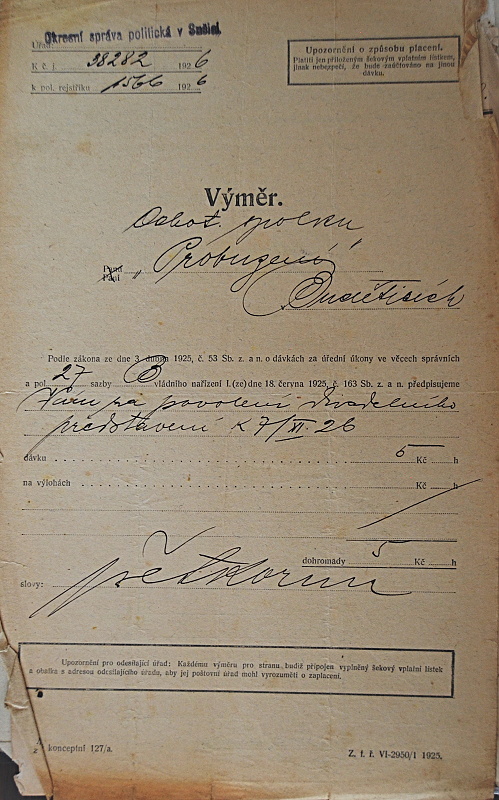 Okresní správa politická v Sušici
Úřad:
K č. j. 38282 192 6
k pol. rejstříku 1566 192 6
Upozornění o způsobu placení.
Platiti jen přiloženým šekovým vplatním lístkem,
jinak nebezpečí, že bude zaúčtováno na jinou
dávku.
Výměr.
Ochot. spolku
„Probuzení“
Paní
Budětisích
Podle zákona ze dne 3. dubna 1925, č. 53 Sb. z. a n. o dávkách za úřední úkony ve věcech správních
a pol. 27 sazby B vládního nařízení I. (ze) dne 18. června 1925, č. 163 Sb. z. a n. předpisujeme
za povolení divadelního
představení z 7/XI. 26
dávku 5 Kč h
na výlohách Kč h
dohromady 5 Kč h
slovy: pět korun
Upozornění pro odesílající úřad: Každému výměru pro stranu budiž připojen vyplněný šekový vplatní lístek
a obálka s adresou odesílajícího úřadu, aby jej poštovní úřad mohl vyrozuměti o zaplacení.
konceptní 127/a.
Z. t. ř. VI-2950/1 1925.